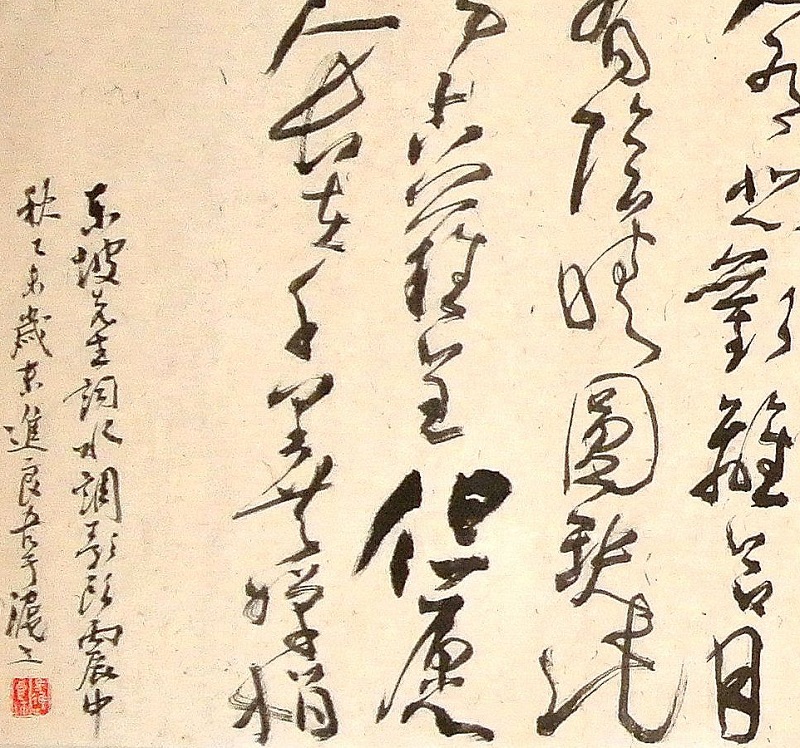 人有悲歡離合月
有陰晴圓缺此
事古難全但願
人長在千里共嬋娟
東坡先生詞水調歌頭震中
秋乙未歲末進良書於